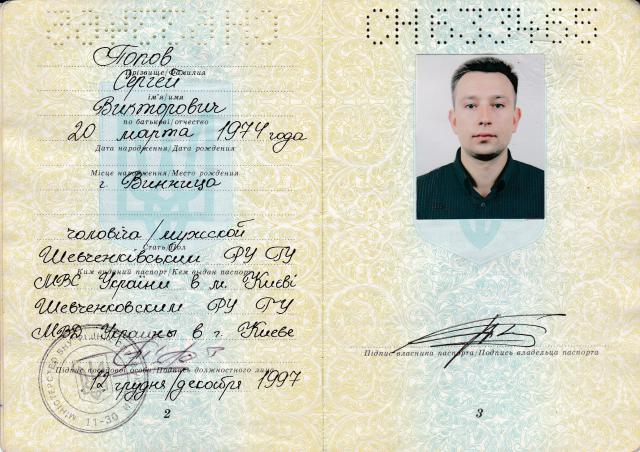 Попов
Прізвище/Фамилия
Сергей
ім'я/имя
Викторович
по батькові/отчество
20 марта 1974 года
Дата народження/Дата рождения
Місце народження/Место рождения
г. Винница
чоловіча/мужской
Стать/Пол
Шевченківським РУ ГУ
Ким виданий паспорт/Кем выдан паспорт
МВС України в м. Києві
Шевченковским РУ ГУ
МВД Украины в г. Киеве
Підпис посадової особи/Подпись должностного лица
12 грудня/декабря 1997
11-30
2
СН633455
Підпис власника паспорта/Подпись владельца паспорта
3